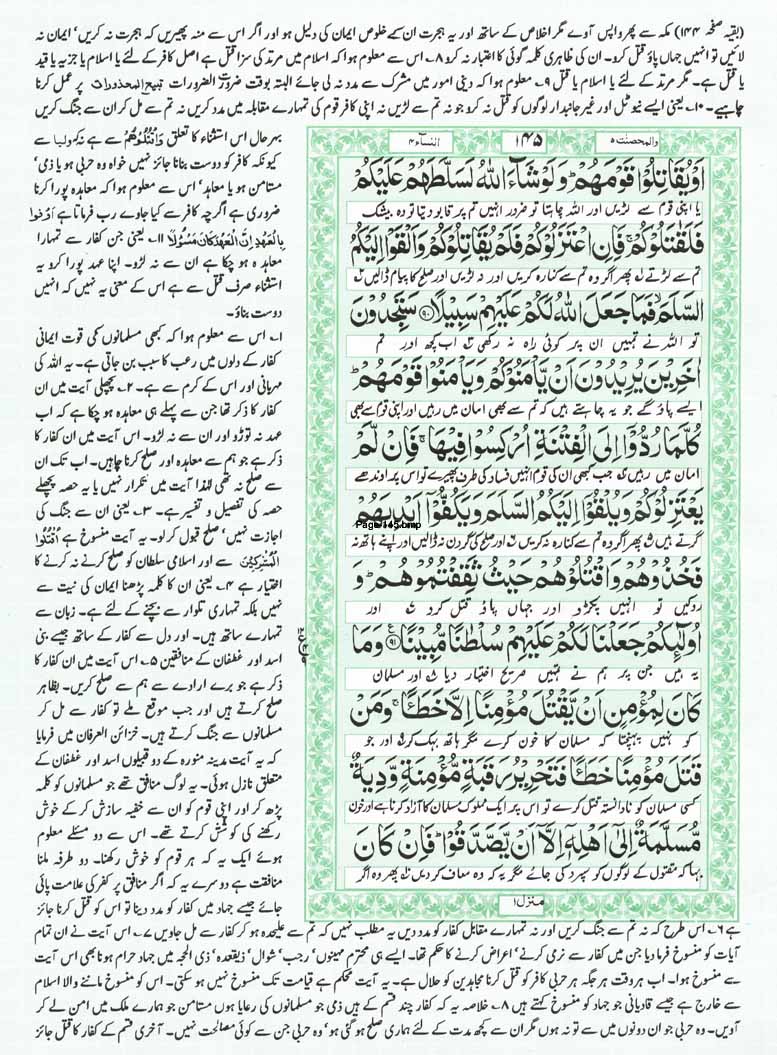 (بقیہ صفحہ ۱۴۴) مکہ سے پھر واپس آوے مگر اخلاص کے ساتھ اور یہ ہجرت ان کے خلوص ایمان کی دلیل ہو اور اگر اس سے منہ پھیریں کہ ہجرت نہ کریں' ایمان نہ
لائیں تو انہیں جہاں پاؤ قتل کرو۔ ان کی ظاہری کلمہ گوئی کا اعتبار نہ کرو ۸۔ اس سے معلوم ہوا کہ اسلام میں مرتد کی سزا قتل ہے اصل کافر کے لئے یا اسلام یا جزیہ یا قید
یا قتل ہے۔ مگر مرتد کے لئے یا اسلام یا قتل ۹۔ معلوم ہوا کہ دینی امور میں مشرک سے مدد نہ لی جائے البتہ بوقت ضرورت الضرورات تبیح المحذورات پر عمل کرنا
چاہیے۔ ۱۰۔ یعنی ایسے نیوٹل اور غیر جانبدار لوگوں کو قتل نہ کرو جو نہ تم سے لڑیں نہ اپنی کافر قوم کی تمہارے مقابلہ میں مدد کریں نہ تم سے مل کر ان سے جنگ کریں
والمحصنت ۵
۱۴۵
النسآء ۴
اَوْ يُقَاتِلُوْا قَوْمَهُمْ ؕ وَلَوْ شَآءَ اللّٰهُ لَسَلَّطَهُمْ عَلَيْكُمْ
یا اپنی قوم سے لڑیں اور اللہ چاہتا تو ضرور انہیں تم پر قابو دیتا تو وہ بیشک
فَلَقٰتَلُوْكُمْ ۚ فَاِنِ اعْتَزَلُوْكُمْ فَلَمْ يُقَاتِلُوْكُمْ وَاَلْقَوْا اِلَيْكُمُ
تم سے لڑتے ۱ پھر اگر وہ تم سے کنارہ کریں اور نہ لڑیں اور صلح کا پیام ڈالیں ۲
السَّلَمَ ۙ فَمَا جَعَلَ اللّٰهُ لَكُمْ عَلَيْهِمْ سَبِيْلًا ﴿۹۰﴾ سَتَجِدُوْنَ
تو اللہ نے تمہیں ان پر کوئی راہ نہ رکھی ۳ اب کچھ اور تم
اٰخَرِيْنَ يُرِيْدُوْنَ اَنْ يَّاْمَنُوْكُمْ وَيَاْمَنُوْا قَوْمَهُمْ ؕ
ایسے پاؤ گے جو یہ چاہتے ہیں کہ تم سے بھی امان میں رہیں اور اپنی قوم سے بھی
كُلَّمَا رُدُّوْۤا اِلَى الْفِتْنَةِ اُرْكِسُوْا فِيْهَا ۚ فَاِنْ لَّمْ
امان میں رہیں ۴ جب کبھی ان کی قوم انہیں فساد کی طرف پھیرے تو اس پر اوندھے
يَعْتَزِلُوْكُمْ وَيُلْقُوْۤا اِلَيْكُمُ السَّلَمَ وَيَكُفُّوْۤا اَيْدِيَهُمْ
Page 145.bmp
گرتے ہیں ۵ پھر اگر وہ تم سے کنارہ نہ کریں ۶ اور صلح کی گردن نہ ڈالیں اور اپنے ہاتھ نہ
فَخُذُوْهُمْ وَاقْتُلُوْهُمْ حَيْثُ ثَقِفْتُمُوْهُمْ ؕ وَ
روکیں تو انہیں پکڑو اور جہاں پاؤ قتل کرو ۷ اور
اُولٰٓئِكُمْ جَعَلْنَا لَكُمْ عَلَيْهِمْ سُلْطٰنًا مُّبِيْنًا ﴿۹۱﴾ وَمَا
یہ ہیں جن پر ہم نے تمہیں صریح اختیار دیا ۸ اور مسلمان
كَانَ لِمُؤْمِنٍ اَنْ يَّقْتُلَ مُؤْمِنًا اِلَّا خَطَـًٔا ۚ وَمَنْ
کو نہیں پہنچتا کہ مسلمان کا خون کرے مگر ہاتھ بہک کر ۹ اور جو
قَتَلَ مُؤْمِنًا خَطَـًٔا فَتَحْرِيْرُ رَقَبَةٍ مُّؤْمِنَةٍ وَّدِيَةٌ
کسی مسلمان کو نادانستہ قتل کرے تو اس پر ایک مملوک مسلمان کا آزاد کرنا ہے اور خون
مُّسَلَّمَةٌ اِلٰۤى اَهْلِهٖۤ اِلَّاۤ اَنْ يَّصَّدَّقُوْا ؕ فَاِنْ كَانَ
بہا کہ مقتول کے لوگوں کو سپرد کی جائے مگر یہ کہ وہ معاف کر دیں پھر وہ اگر
منزل ۱
بہر حال اس استثناء کا تعلق وَاقْتُلُوْهُمْ سے ہے نہ کہ ولیا سے
کیونکہ کافر کو دوست بنانا جائز نہیں خواہ وہ حربی ہو یا ذمی'
مستامن ہو یا معاہد' اس سے معلوم ہوا کہ معاہدہ پورا کرنا
ضروری ہے اگرچہ کافر سے کیا جاوے رب فرماتا ہے اَوْفُوْا
بِالْعَهْدِ اِنَّ الْعَهْدَ كَانَ مَسْئُوْلًا ۱۱۔ یعنی جن کفار سے تمہارا
معاہدہ ہو چکا ہے ان سے نہ لڑو۔ اپنا عہد پورا کرو یہ
استثناء صرف قتل سے ہے اس کے معنی یہ نہیں کہ انہیں
دوست بناؤ۔
۱۔ اس سے معلوم ہوا کہ کبھی مسلمانوں کی قوت ایمانی
کفار کے دلوں میں رعب کا سبب بن جاتی ہے۔ یہ اللہ کی
مہربانی اور اس کے کرم سے ہے۔ ۲۔ پچھلی آیت میں ان
کفار کا ذکر تھا جن سے پہلے ہی معاہدہ ہو چکا ہے کہ اب
عہد نہ توڑو اور ان سے نہ لڑو۔ اس آیت میں ان کفار کا
ذکر ہے جو ہم سے معاہدہ اور صلح کرنا چاہیں۔ اب تک ان
سے صلح نہ تھی لہٰذا آیت میں تکرار نہیں یا یہ حصہ پچھلے
حصہ کی تفصیل و تفسیر ہے۔ ۳۔ یعنی ان سے جنگ کی
اجازت نہیں' صلح قبول کر لو۔ یہ آیت منسوخ ہے اُقْتُلُوا
الْمُشْرِكِيْنَ سے اور اسلامی سلطان کو صلح کرنے نہ کرنے کا
اختیار ہے ۴۔ یعنی ان کا کلمہ پڑھنا ایمان کی نیت سے
نہیں بلکہ تمہاری تلوار سے بچنے کے لئے ہے۔ زبان سے
تمہارے ساتھ ہیں۔ اور دل سے کفار کے ساتھ جیسے بنی
اسد اور غطفان کے منافقین ۵۔ اس آیت میں ان کفار کا
ذکر ہے جو برے ارادے سے ہم سے صلح کریں۔ بظاہر
صلح کرتے ہیں اور جب موقع ملے تو کفار سے مل کر
مسلمانوں سے جنگ کرتے ہیں۔ خزائن العرفان میں فرمایا
کہ یہ آیت مدینہ منورہ کے دو قبیلوں اسد اور غطفان کے
متعلق نازل ہوئی۔ یہ لوگ منافق تھے جو مسلمانوں کو کلمہ
پڑھ کر اور اپنی قوم کو ان سے خفیہ سازش کر کے خوش
رکھنے کی کوشش کرتے تھے۔ اس سے دو مسئلے معلوم
ہوئے ایک یہ کہ ہر قوم کو خوش رکھنا۔ دو طرفہ ملنا
منافقت ہے دوسرے یہ کہ اگر منافق پر کفر کی علامت پائی
جائے جیسے جہاد میں کفار کو مدد دینا تو اس کو قتل کرنا جائز
ہے ۶۔ اس طرح کہ نہ تم سے جنگ کریں اور نہ تمہارے مقابل کفار کو مدد دیں یہ مطلب نہیں کہ تم سے علیحدہ ہو کر کفار سے مل جاویں ۷۔ اس آیت نے ان تمام
آیات کو منسوخ فرما دیا جن میں کفار سے نرمی کرنے' اعراض کرنے کا حکم تھا۔ ایسے ہی محترم مہینوں' رجب' شوال' ذیقعدہ' ذی الحجہ میں جہاد حرام ہونا بھی اس آیت
سے منسوخ ہوا۔ اب ہر وقت ہر جگہ ہر حربی کافر کو قتل کرنا مجاہدین کو حلال ہے۔ یہ آیت محکم ہے قیامت تک منسوخ نہیں ہو سکتی۔ اس کو منسوخ ماننے والا اسلام
سے خارج ہے جیسے قادیانی جو جہاد کو منسوخ کہتے ہیں ۸۔ خلاصہ یہ کہ کفار چند قسم کے ہیں ذمی جو مسلمانوں کی رعایا ہوں مستامن جو ہمارے ملک میں امن لے کر
آویں۔ وہ حربی جو ان دونوں میں سے تو نہ ہوں مگر ان سے کچھ مدت کے لئے ہماری صلح ہو گئی ہو' وہ حربی جن سے کوئی مصالحت نہیں۔ آخری قسم کے کفار کا قتل جائز